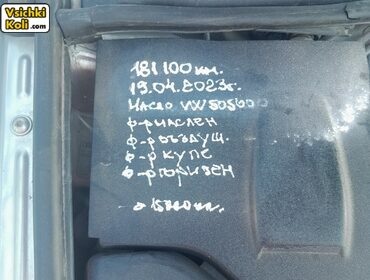 Vsichki
Koli.com
181100 км.
19.04.2023г.
Масло VW505600
ф-р маслен
ф-р въздуш.
ф-р купе
ф-р горивен
15000 км.